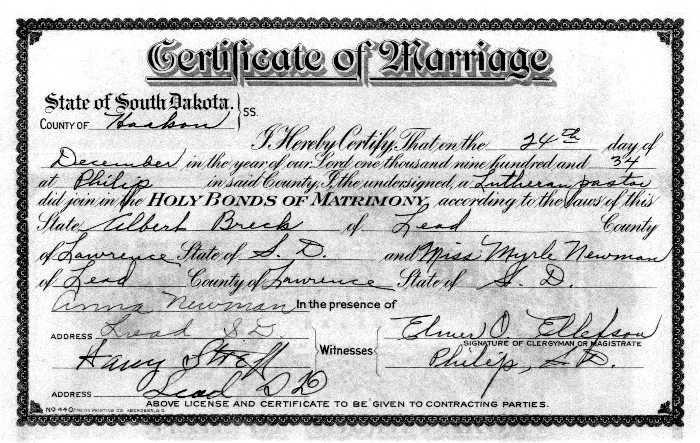 Certificate of Marriage
State of South Dakota. } SS.
COUNTY OF Haakon
I Hereby Certify, That on the 24th day of
December in the year of our Lord one thousand nine hundred and 34
at Philip in said County, I, the undersigned, a Lutheran pastor
did join in the HOLY BONDS OF MATRIMONY, according to the laws of this
State Albert Breck of Lead County
of Lawrence State of S. D. and Miss Myrle Newman
of Lead County of Lawrence State of S. D.
Anna Newman In the presence of
ADDRESS Lead S.D. Elmer O. Ellefson
Witnesses SIGNATURE OF CLERGYMAN OR MAGISTRATE
Harry Philip, S. D.
ADDRESS Lead S D
ABOVE LICENSE AND CERTIFICATE TO BE GIVEN TO CONTRACTING PARTIES.
NO. 440 NEWS PRINTING CO. ABERDEEN, S.D.